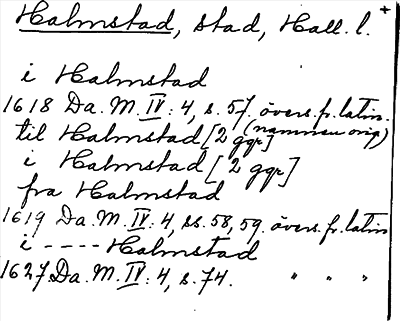 Halmstad, stad, Hall. l. +
i Halmstad
1618 Da. M. IV: 4, s. 57. övers. fr. latin.
(namnen orig)
til Halmstad [2 ggr]
i Halmstad [2 ggr]
fra Halmstad
1619 Da. M. IV: 4, ss. 58, 59. övers. fr. latin
i - - - - Halmstad
1627 Da. M. IV: 4, s. 74. " " "